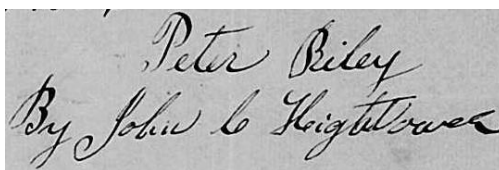 Peter Riley
By John C Hightower